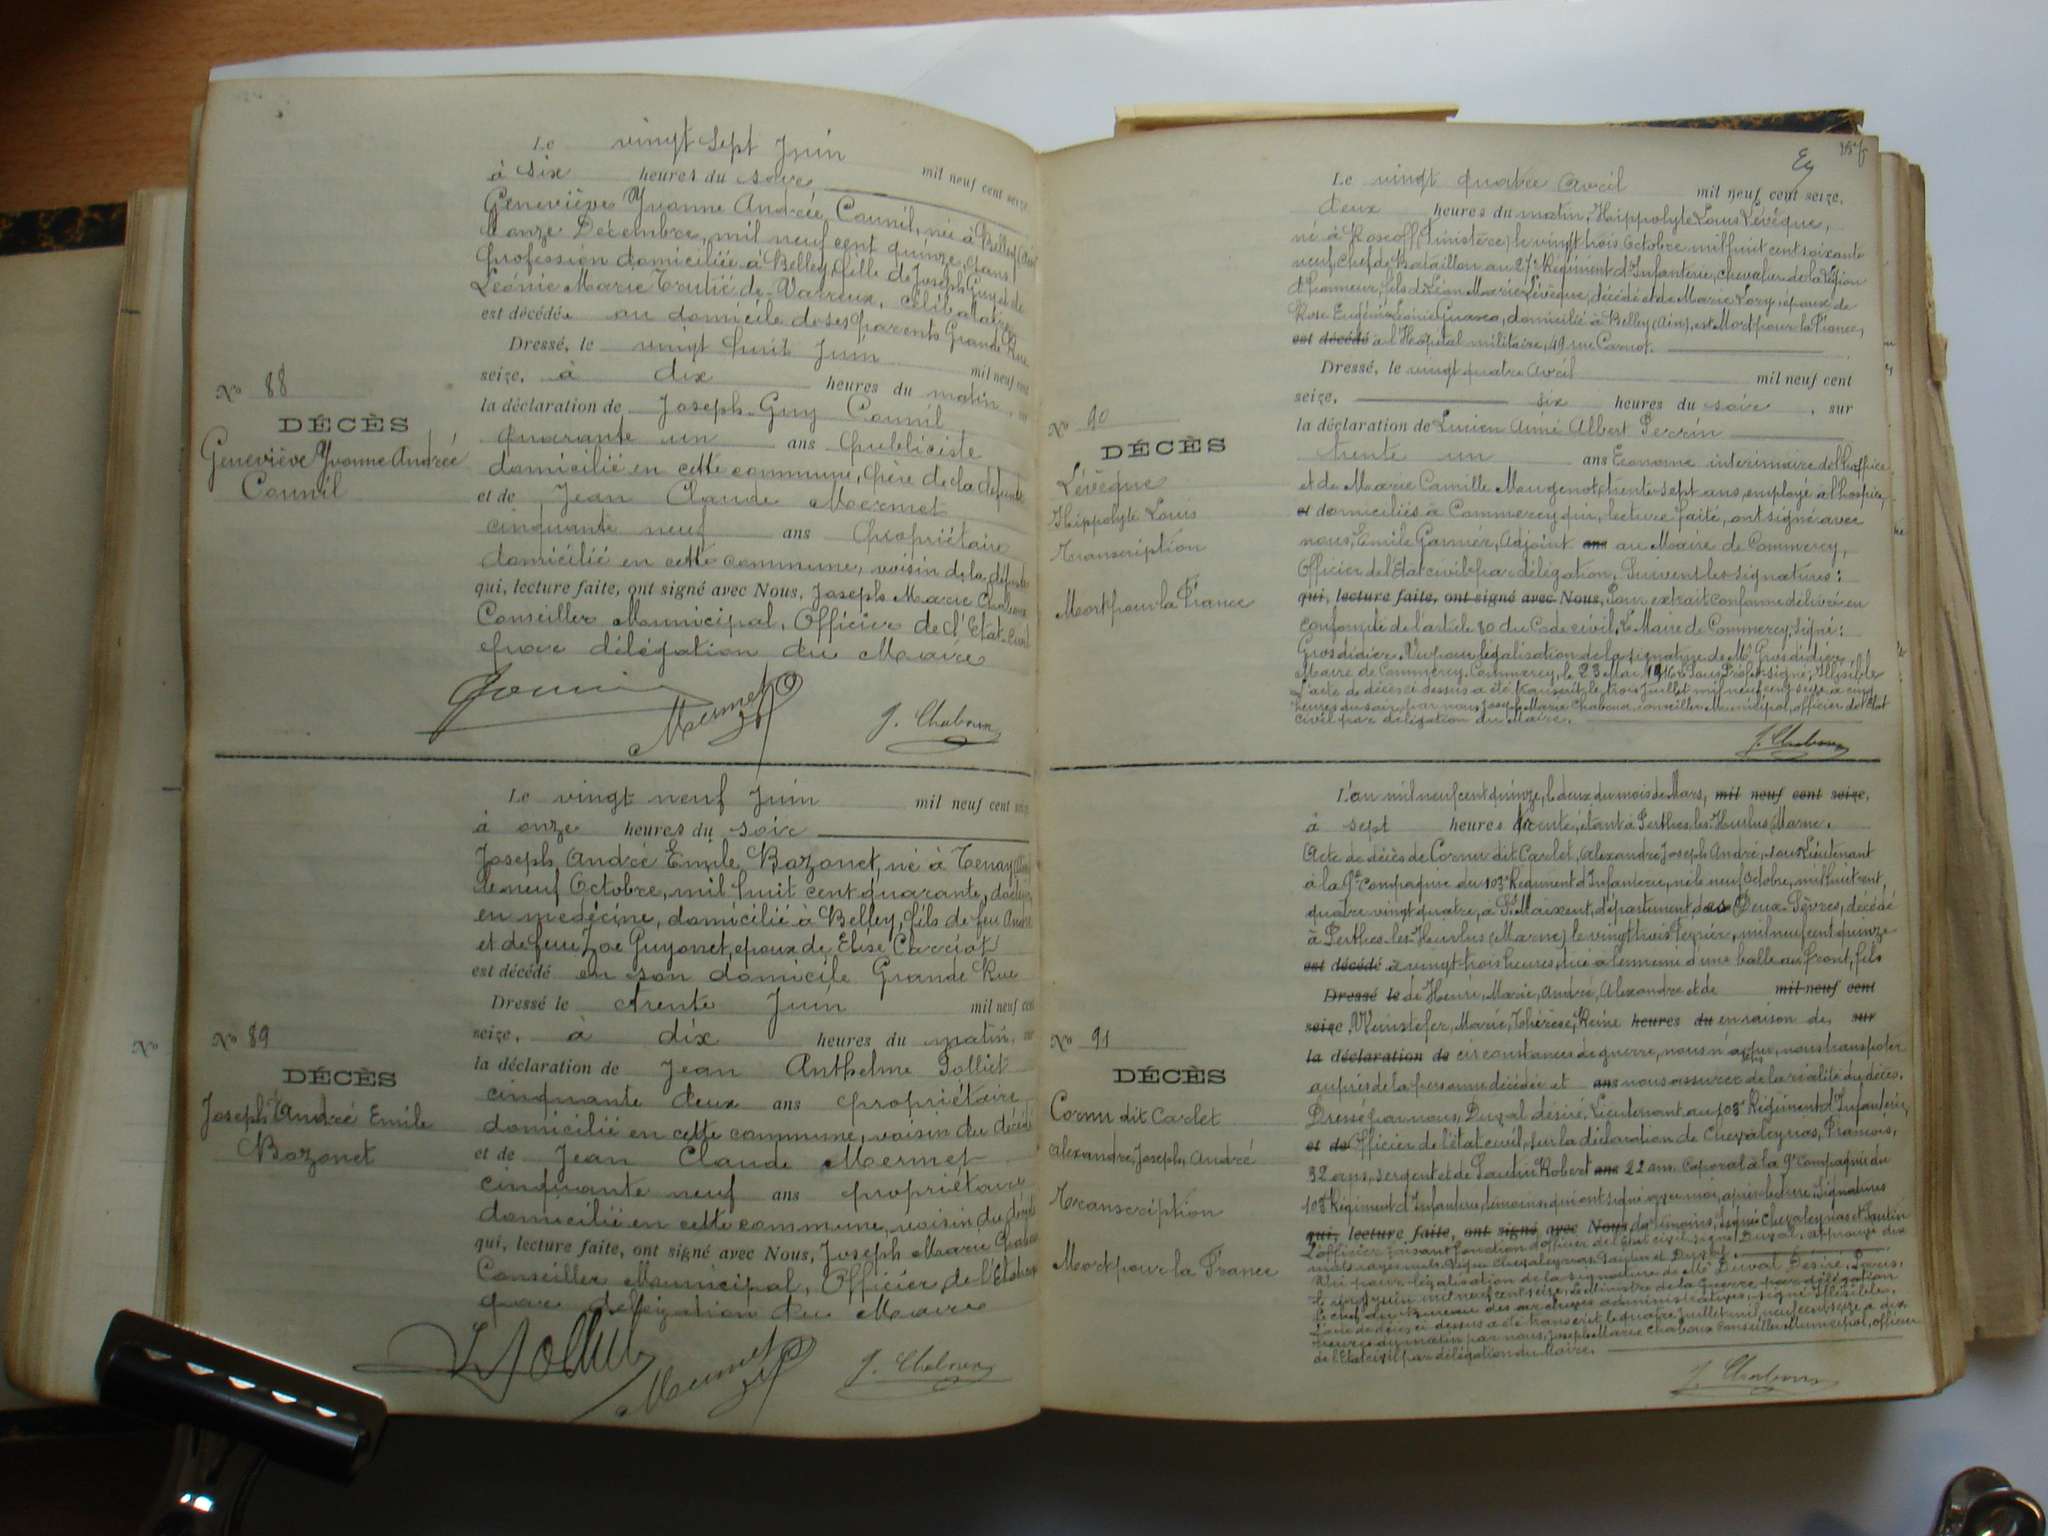 Le vingt sept Juin mil neuf cent seize
à six heures du soir,
Geneviève Yvonne Andrée Counil, née à Belley (Ain)
le onze Décembre, mil neuf cent quinze, sans
profession domiciliée à Belley, fille de Joseph Guy et de
Léonie Marie Trutié de Varreux, célibataire
est décédée au domicile de ses parents Grande Rue
Dressé, le vingt huit Juin mil neuf cent
seize, à dix heures du matin, sur
la déclaration de Joseph Guy Counil
quarante un ans publiciste
domicilié en cette commune, père de la défunte
et de Jean Claude Mermet
cinquante neuf ans propriétaire
domicilié en cette commune, voisin de la défunte
qui, lecture faite, ont signé avec Nous, Joseph Marie Chaboux
Conseiller Municipal, Officier de l'Etat-civil
par délégation du Maire
Nº 88
DÉCÈS
Geneviève Yvonne Andrée
Counil
Mermet
J. Chaboux
Le vingt neuf Juin mil neuf cent seize
à onze heures du soir
Joseph, André Emile Bozonet, né à Tenay (Ain)
le neuf Octobre, mil huit cent quarante, docteur
en médecine, domicilié à Belley, fils de feu André
et de feue Zoé Guyonet, époux de Elise Carriot
est décédé en son domicile Grande Rue
Dressé le trente Juin mil neuf cent
seize, à dix heures du matin, sur
la déclaration de Jean Anthelme Tolliet
cinquante deux ans propriétaire
domicilié en cette commune, voisin du décédé
et de Jean Claude Mermet
cinquante neuf ans propriétaire
domicilié en cette commune, voisin du décédé
qui, lecture faite, ont signé avec Nous, Joseph Marie Chaboux
Conseiller Municipal, Officier de l'Etat civil
par délégation du Maire
Nº 89
DÉCÈS
Joseph André Emile
Bozonet
Mermet
J. Chaboux
Nº
Le vingt quatre Avril mil neuf cent seize,
deux heures du matin, Hippolyte Louis Lévêque,
né à Roscoff (Finistère) le vingt trois Octobre mil huit cent soixante
neuf, Chef de Bataillon au 27e Régiment d'Infanterie, chevalier de la Légion
d'honneur, fils de Léon Marie Lévêque, décédé et de Marie Lory, époux de
Rose Eugénie Léonie Guasco, domicilié à Belley (Ain), est Mort pour la France,
est décédé à l'Hôpital militaire, 49 rue Carnot.
Dressé, le vingt quatre Avril mil neuf cent
seize, six heures du soir, sur
la déclaration de Lucien Aimé Albert Perrin
trente un ans Econome intérimaire de l'hospice
et de Marie Camille Mougenot, trente sept ans, employé à l'hospice,
et domiciliés à Commercy qui, lecture faite, ont signé avec
nous, Emile Garnier, Adjoint ans au Maire de Commercy,
Officier de l'Etat civil par délégation. Suivent les signatures:
qui, lecture faite, ont signé avec Nous, Pour extrait conforme délivré en
conformité de l'article 80 du Code civil, Le Maire de Commercy, signé:
Grosdidier. Vu pour légalisation de la signature de Mr Grosdidier,
Maire de Commercy. Commercy, le 23 Mai 1916 Le Sous Préfet signé: Illisible
L'acte de décès ci dessus a été transcrit le trois Juillet mil neuf cent seize à cinq
heures du soir, par nous Joseph Marie Chaboux, conseiller Municipal, officier de l'Etat
civil par délégation du Maire.
J. Chaboux
Nº 90
DÉCÈS
Lévêque
Hippolyte Louis
Transcription
Mort pour la France
L'an mil neuf cent quinze, le deux du mois de Mars, mil neuf cent seize,
à sept heures trente, étant à Perthes les Hurlus (Marne.
Acte de décès de Cornu dit Carlet, Alexandre Joseph André, sous Lieutenant
à la 9e Compagnie du 103e Régiment d'Infanterie, né le neuf Octobre, mil huit cent
quatre vingt quatre, à St Maixent, département des Deux-Sèvres, décédé
à Perthes-les-Hurlus (Marne) le vingt trois Février, mil neuf cent quinze
est décédé à vingt trois heures, tué à l'ennemi d'une balle au front, fils
Dressé le de Henri, Marie, André, Alexandre et de mil neuf cent
seize Weinstefer, Marie, Thérèse, Reine heures du en raison des sur
la déclaration de circonstances de guerre, nous n'avons pu, nous transporter
auprès de la personne décédée et ans nous assurer de la réalité du décès.
Dressé par nous, Duval désiré, Lieutenant au 103e Régiment d'Infanterie,
et de Officier de l'état civil, sur la déclaration de Chevaleyrias, François,
32 ans, sergent et de Sautin Robert ans 22 ans Caporal à la 9e Compagnie du
103e Régiment d'Infanterie, témoins qui ont signé avec moi, après lecture. Signatures
qui, lecture faite, ont signé avec Nous des témoins, Signé Chevaleyrias et Sautin
L'officier faisant fonction d'officier de l'état civil signé Duval. Approuvé dix
mots rayés nuls. Signé Chevaleyrias, Sautin et Duval.
Vu pour légalisation de la signature de Mr Duval Désiré, Paris,
le vingt juin mil neuf cent seize, Le Ministre de la Guerre par délégation
le chef du Bureau des archives administratives, signé Illisible.
L'acte de décès ci dessus a été transcrit le quatre Juillet mil neuf cent seize à dix
heures du matin par nous, Joseph Marie Chaboux Conseiller Municipal, officier
de l'Etat civil par délégation du Maire.
J. Chaboux
Nº 91
DÉCÈS
Cornu dit Carlet
Alexandre, Joseph, André
Transcription
Mort pour la France